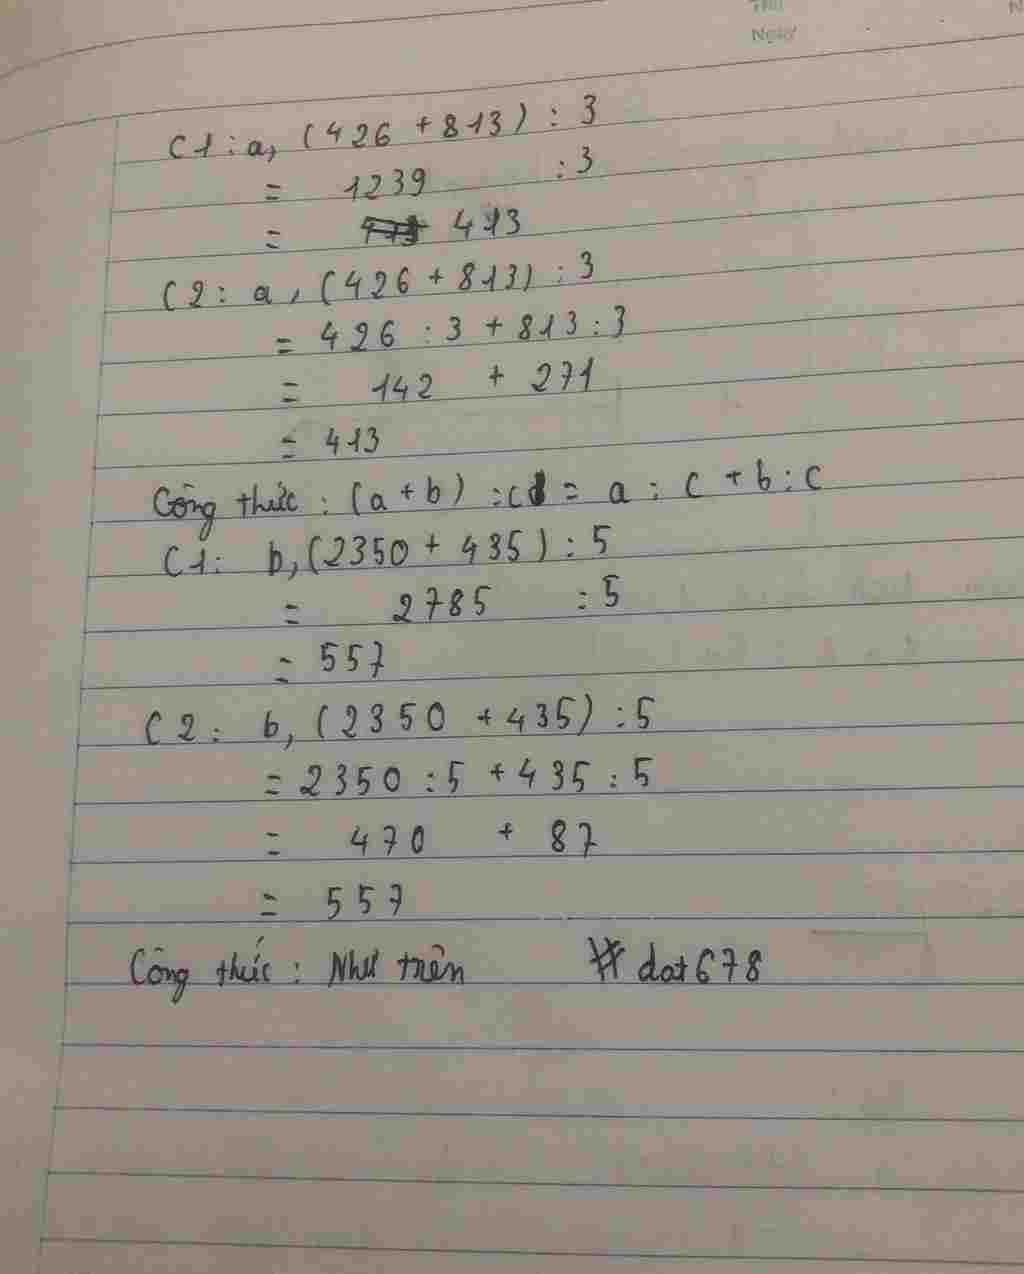 Thứ
Ngày
N
C1: a, (426 + 813) : 3
= 1239 : 3
= 413
C2: a, (426 + 813) : 3
= 426 : 3 + 813 : 3
= 142 + 271
= 413
Công thức : (a + b) : c = a : c + b : c
C1: b, (2350 + 435) : 5
= 2785 : 5
= 557
C2: b, (2350 + 435) : 5
= 2350 : 5 + 435 : 5
= 470 + 87
= 557
Công thức : Như trên # dat678